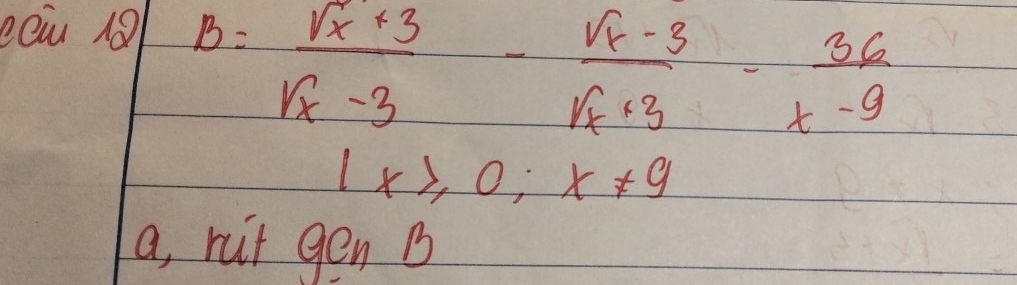 Câu 12 B = (√x + 3)/(√x - 3) - (√x - 3)/(√x + 3) - 36/(x - 9)
( x ≥ 0; x ≠ 9
a, rút gọn B